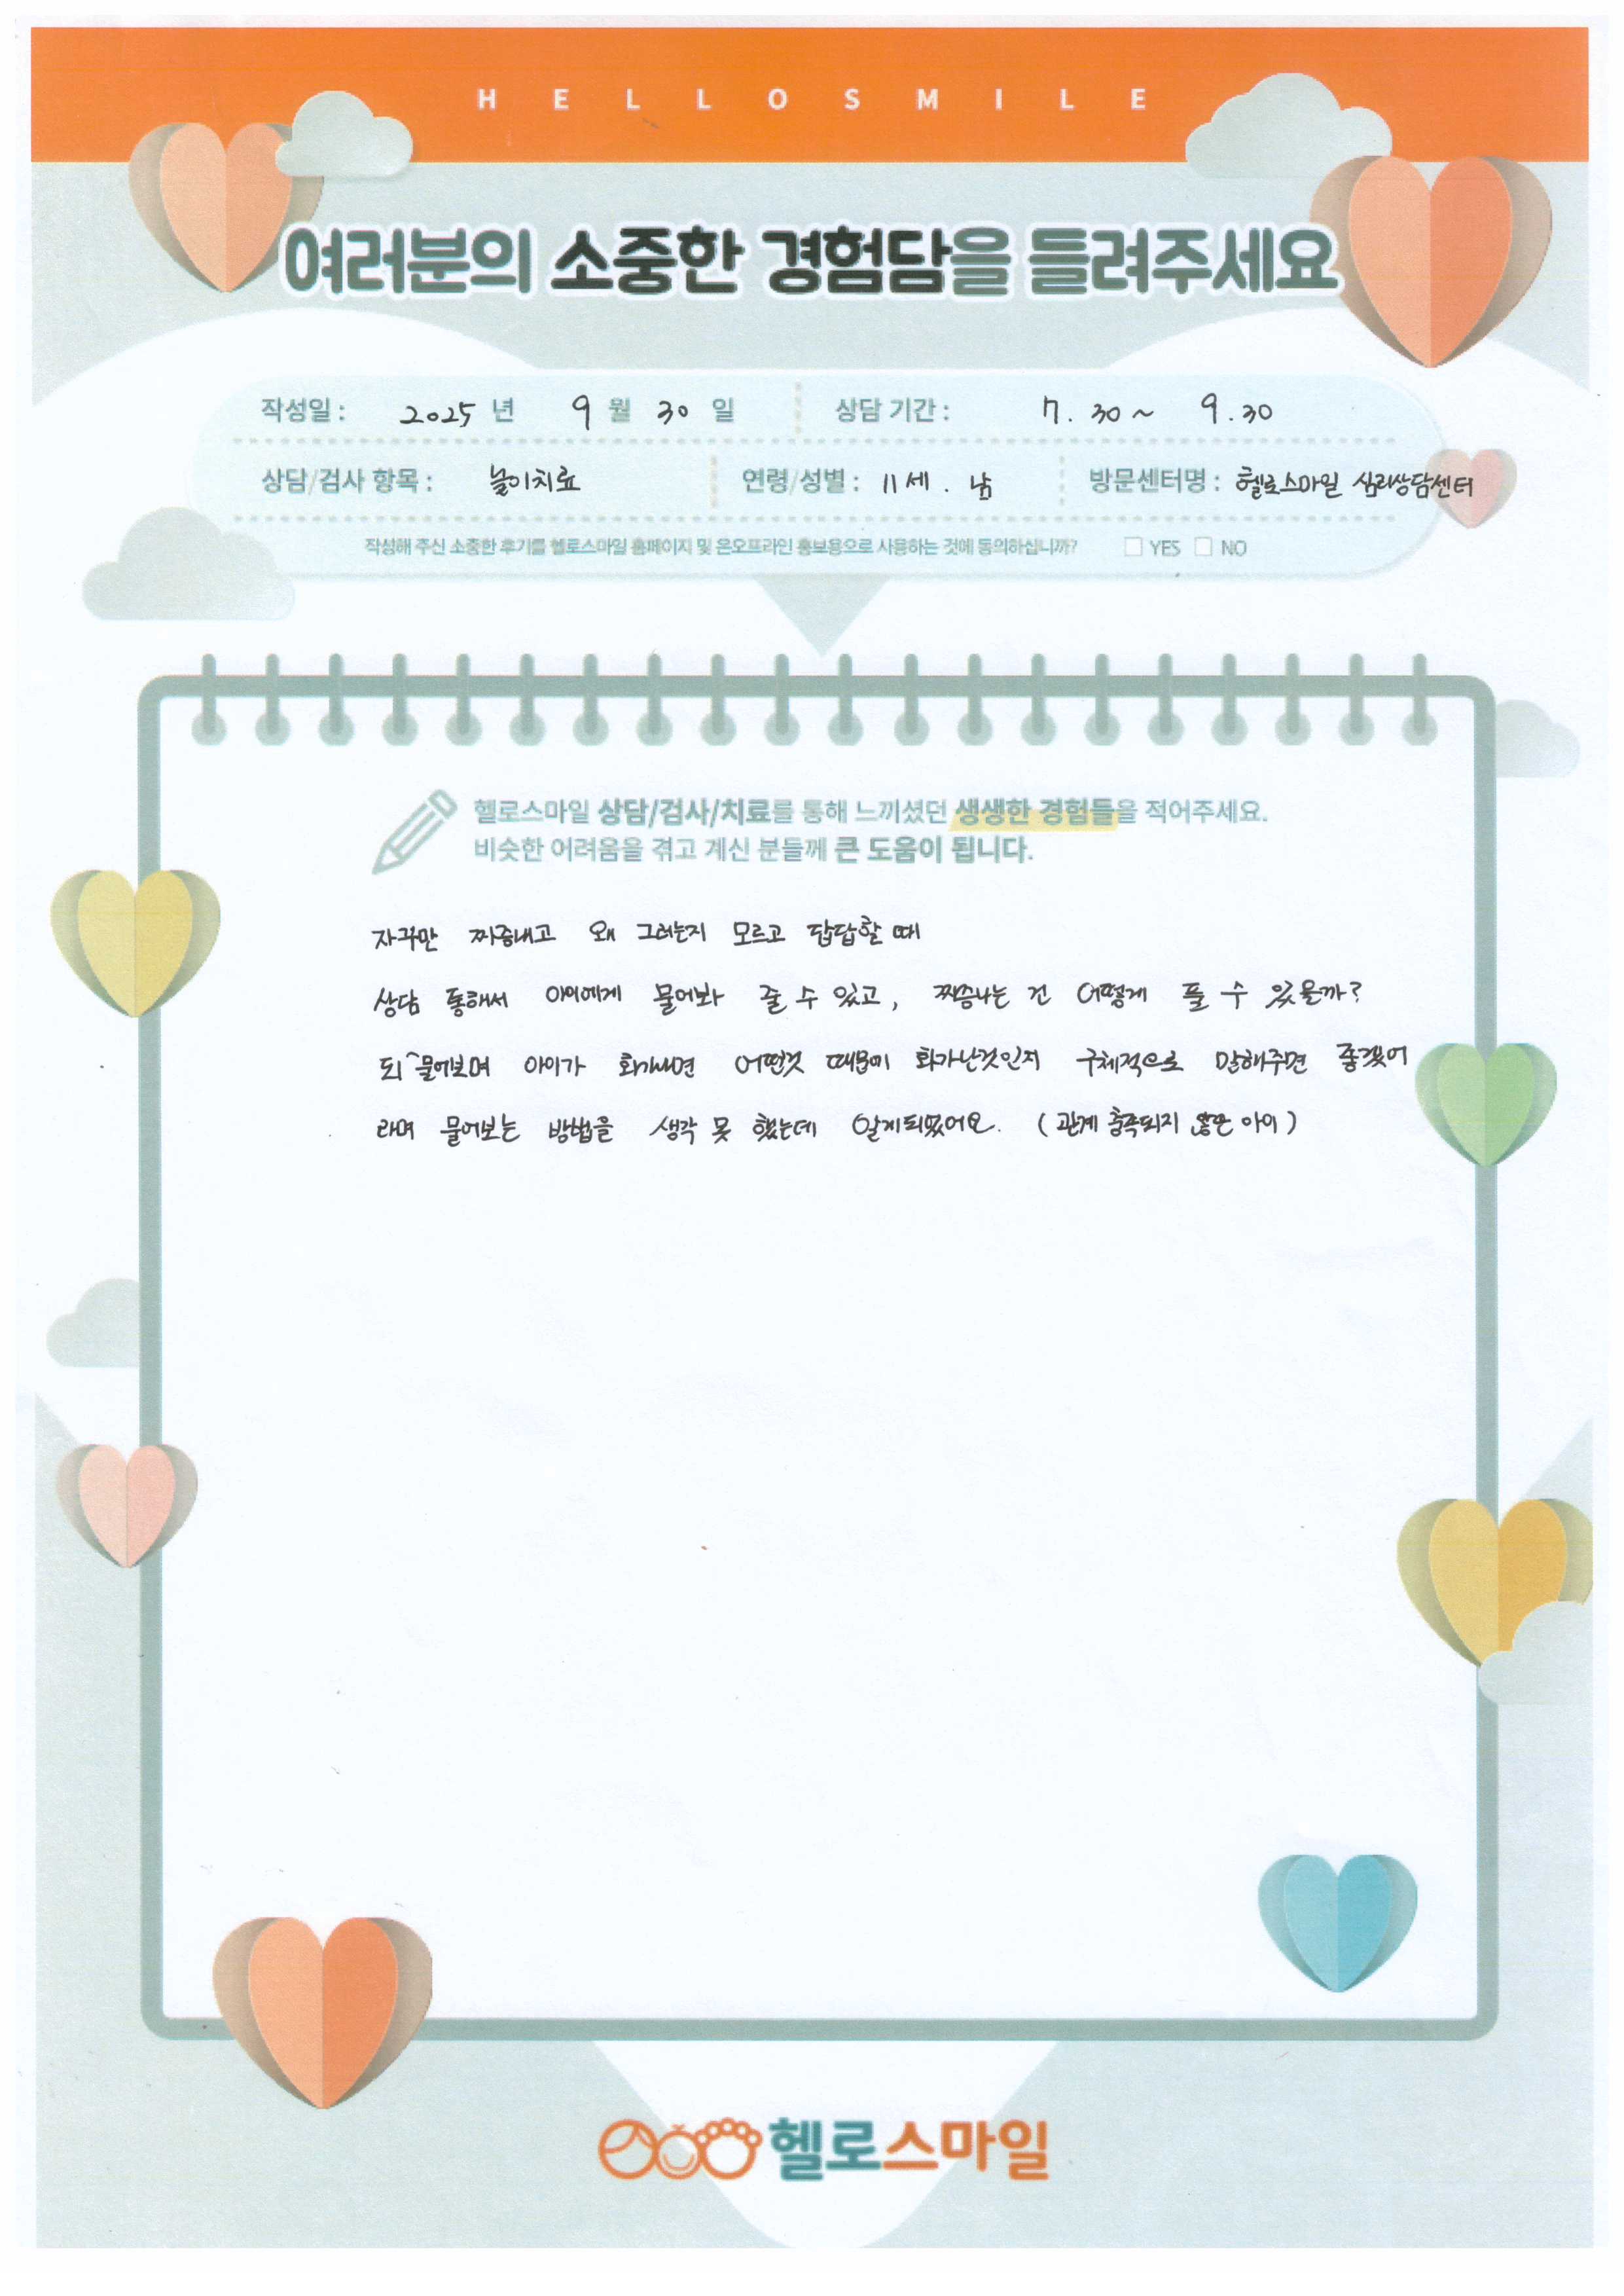 HELLOSMILE
여러분의 소중한 경험담을 들려주세요
작성일 : 2025 년 9 월 30 일 상담 기간 : 7. 30 ~ 9. 30
상담/검사 항목 : 놀이치료 연령/성별 : 11세 . 남 방문센터명 : 헬로스마일 심리상담센터
작성해 주신 소중한 후기를 헬로스마일 홈페이지 및 온오프라인 홍보용으로 사용하는 것에 동의하십니까? YES NO
헬로스마일 상담/검사/치료를 통해 느끼셨던 생생한 경험들을 적어주세요.
비슷한 어려움을 겪고 계신 분들께 큰 도움이 됩니다.
자꾸만 짜증내고 왜 그러는지 모르고 답답할 때
상담 통해서 아이에게 물어봐 줄 수 있고, 짜증나는 건 어떻게 풀 수 있을까?
되^물어보며 아이가 화가나면 어떤것 때문에 화가난것인지 구체적으로 말해주면 좋겠어
라며 물어보는 방법을 생각 못 했는데 알게되었어요. (관계 충족되지 않은 아이)
헬로스마일